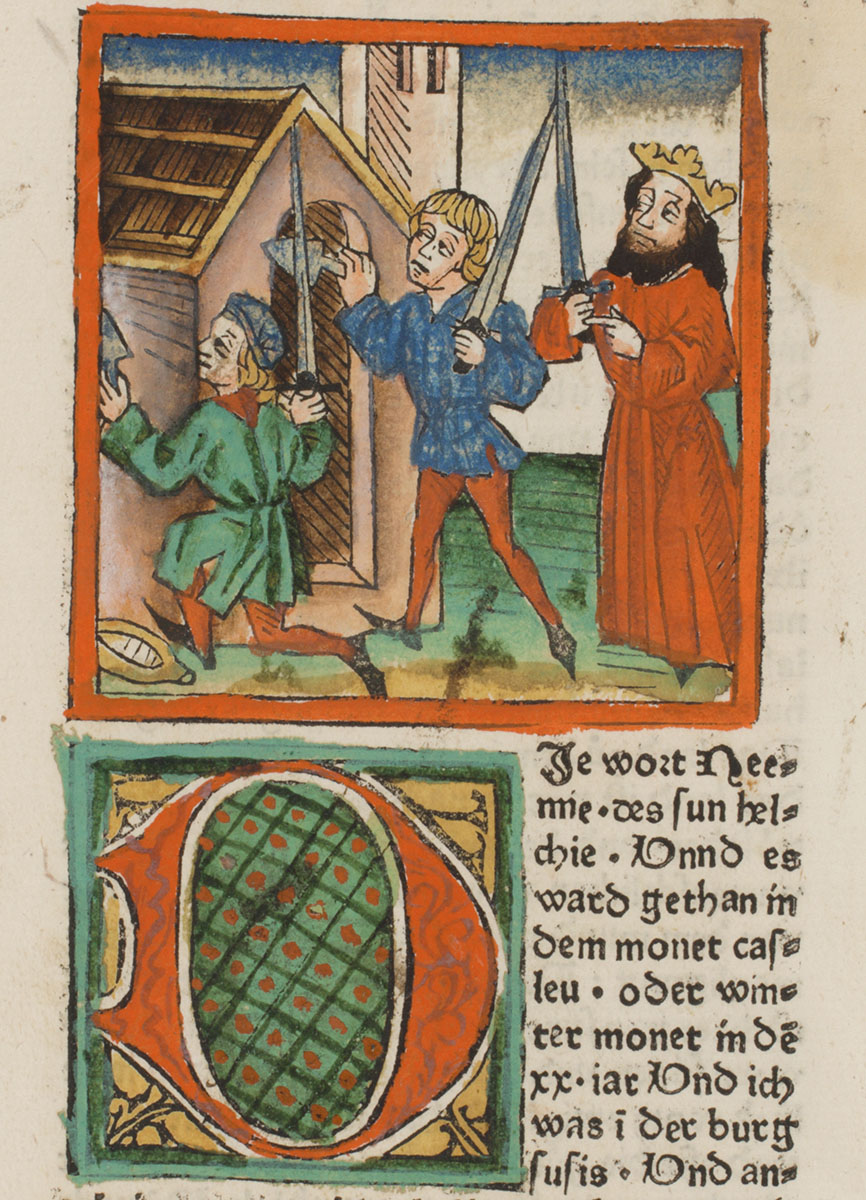 DJe wort Nee⸗
mie·des sun hel⸗
chie · Vnnd es
ward gethan in
dem monet cas⸗
leu · oder win⸗
ter monet in dē
xx·iar Vnd ich
was ī der burg
susis · Vnd an⸗